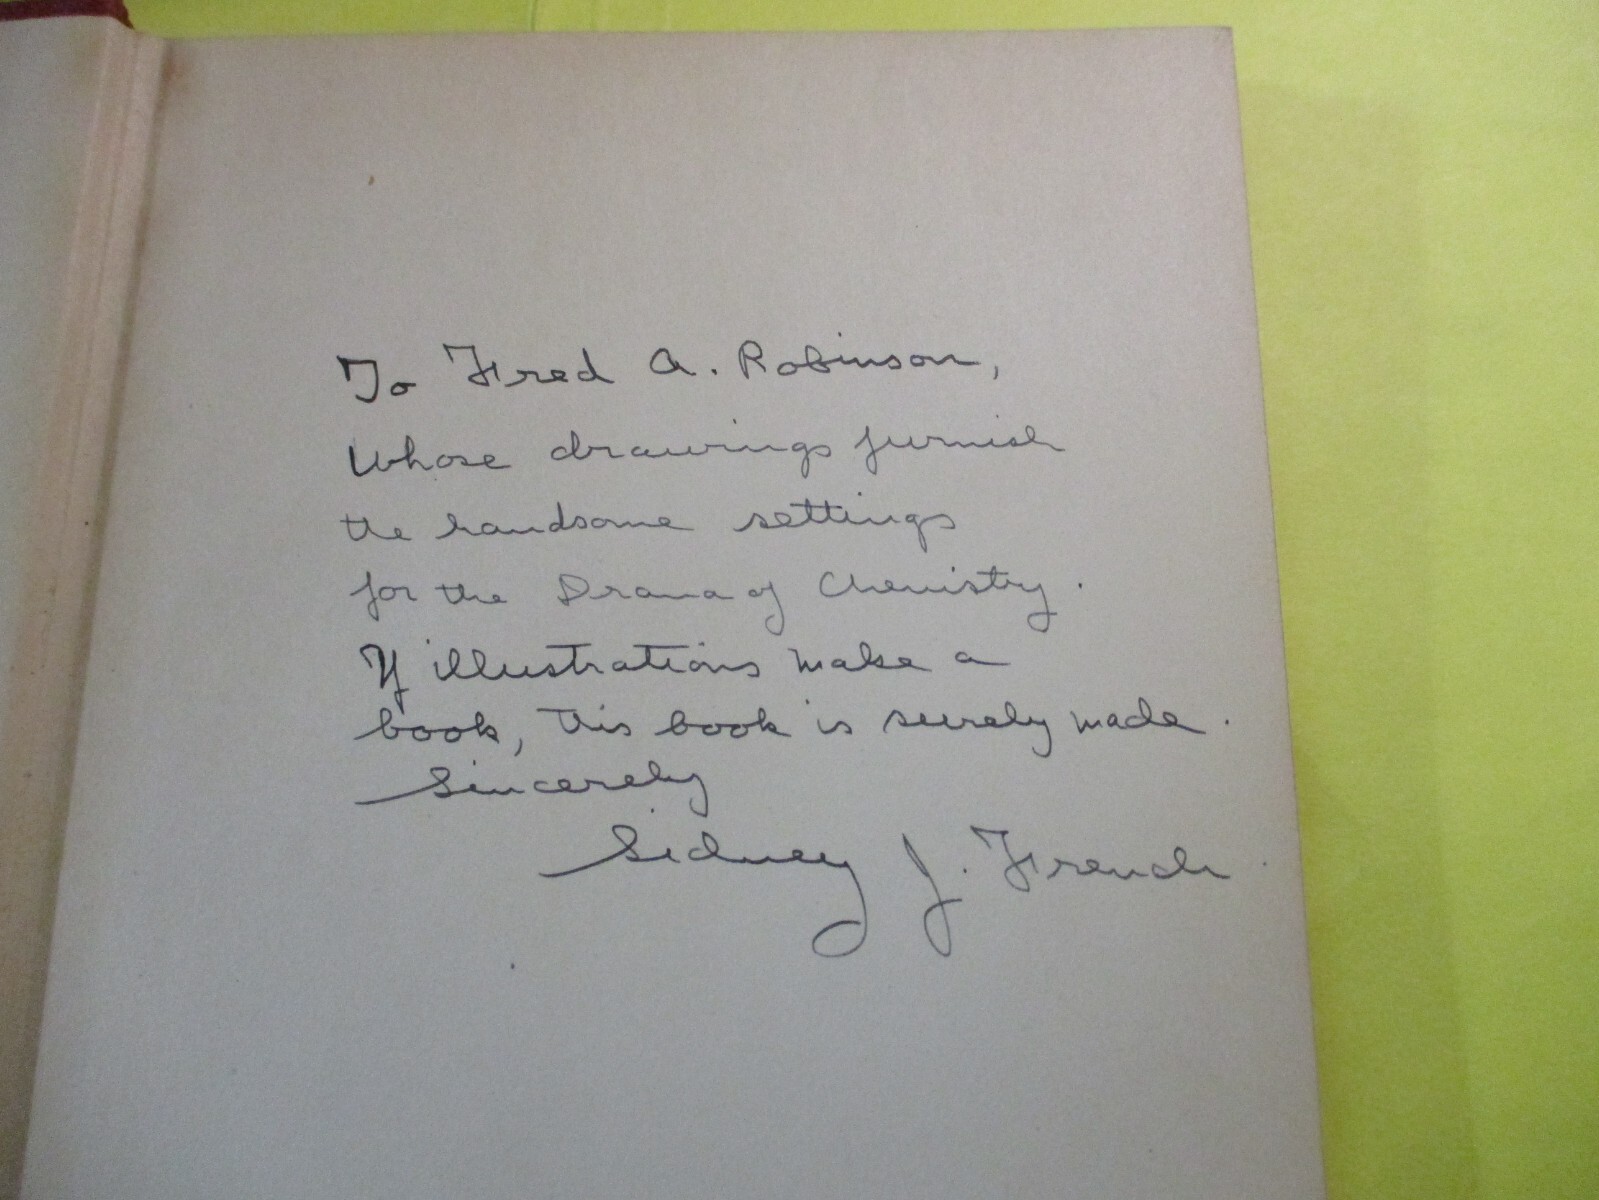 To Fred A. Robinson,
Whose drawings furnish
the handsome settings
for the Drama of Chemistry.
If illustrations make a
book, this book is surely made.
Sincerely
Sidney J. French